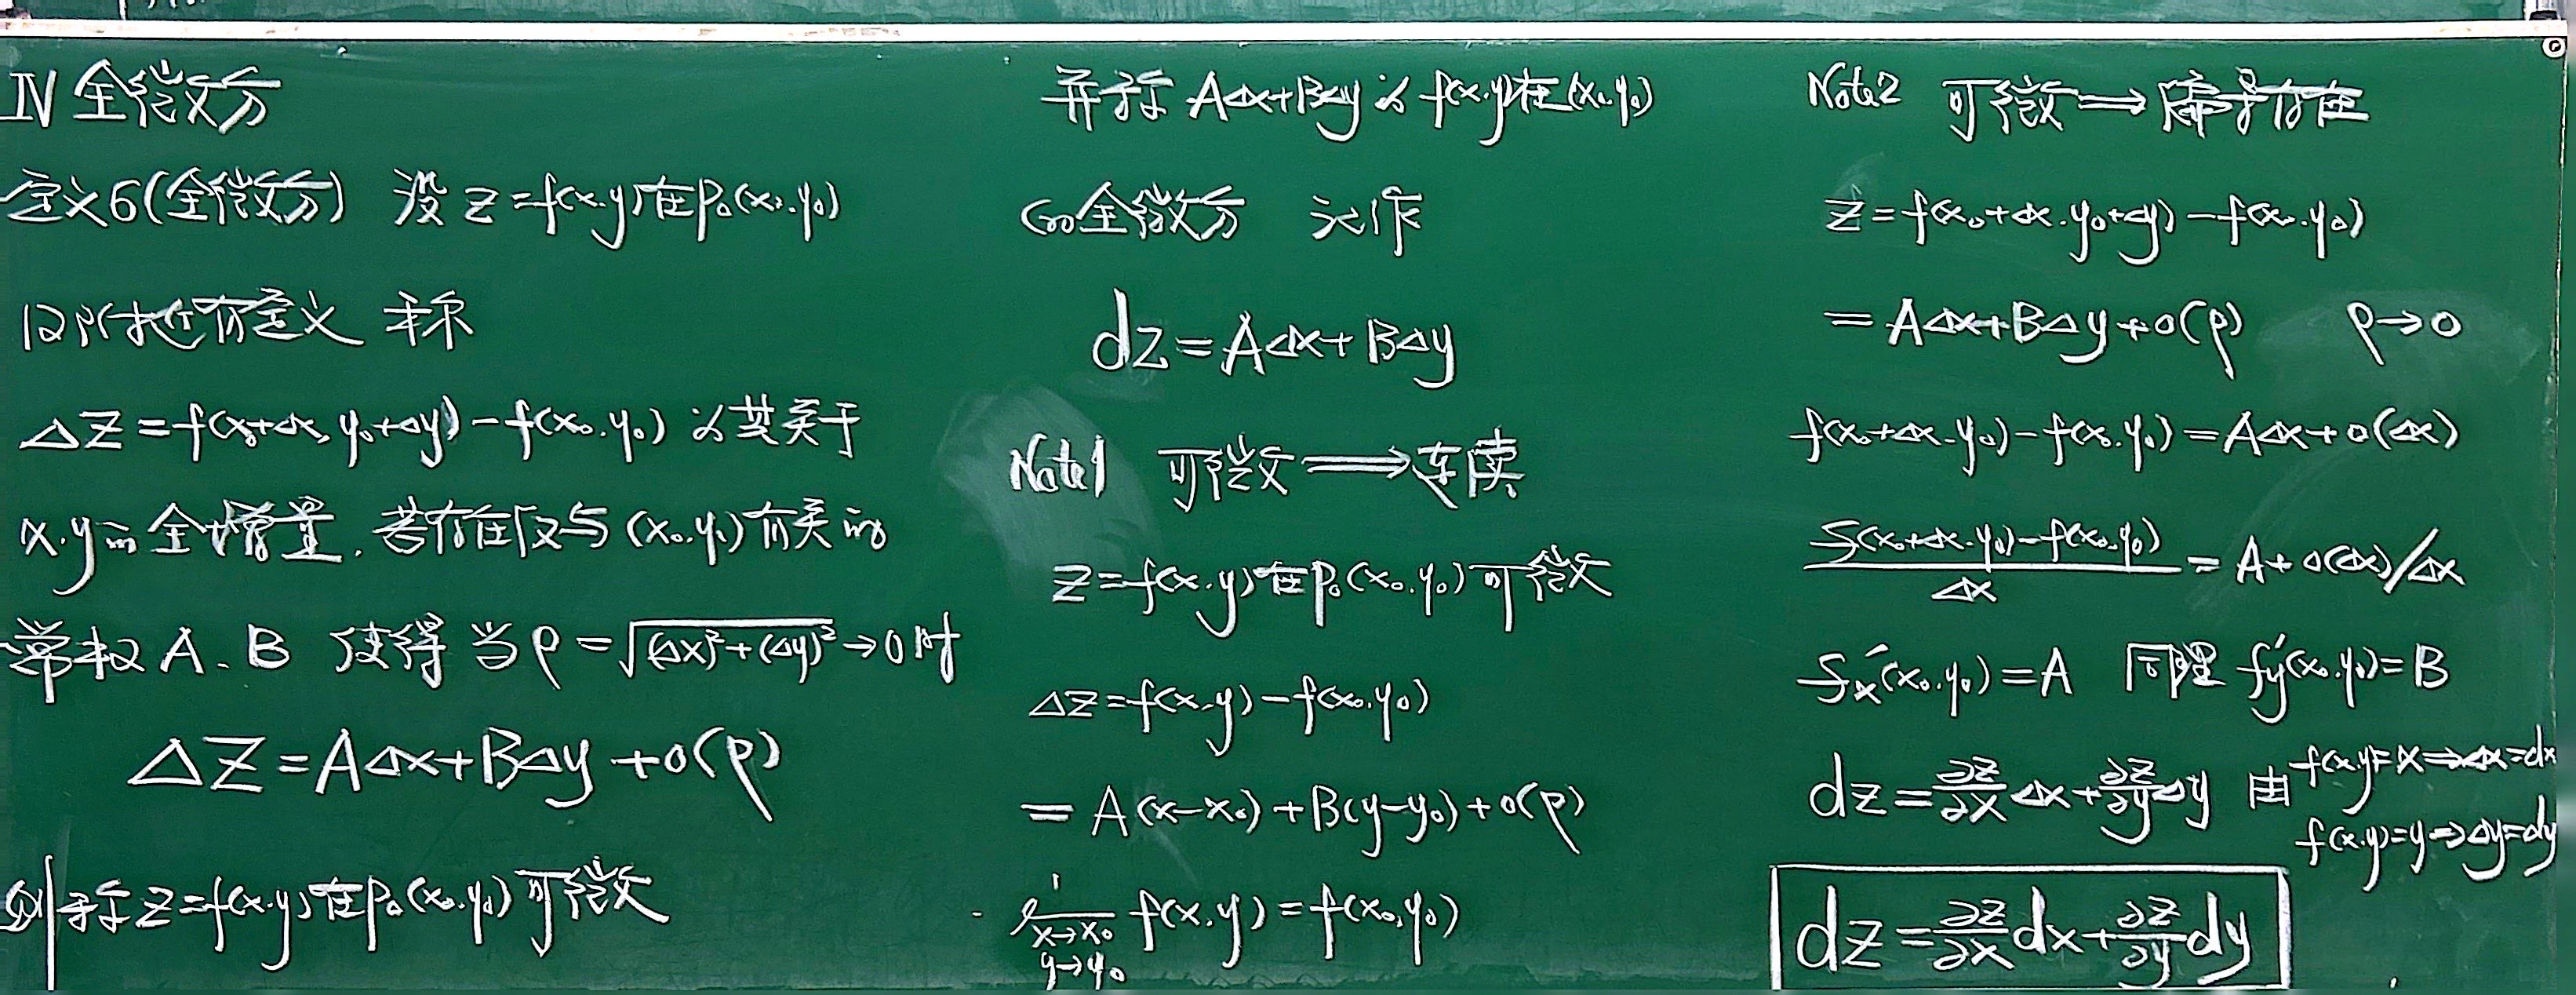 IV 全微分
定义6(全微分) 设 z=f(x.y)在P₀(x₀.y₀)
及附近有定义 称
Δz=f(x₀+Δx, y₀+Δy)-f(x₀.y₀) 为其关于
x.y的全增量. 若存在仅与(x₀.y₀)有关的
常数A、B 使得 当ρ=√((Δx)²+(Δy)²)→0时
Δz=AΔx+BΔy+o(ρ)
则称z=f(x.y)在P₀(x₀.y₀)可微
并称 AΔx+BΔy为f(x.y)在(x₀.y₀)
的全微分 记作
dz=AΔx+BΔy
Note1 可微⟹连续
z=f(x.y)在P₀(x₀.y₀)可微
Δz=f(x.y)-f(x₀.y₀)
=A(x-x₀)+B(y-y₀)+o(ρ)
f(x.y)=f(x₀.y₀)
x→x₀
y→y₀
Note2 可微⟹偏导存在
z=f(x₀+Δx.y₀+Δy)-f(x₀.y₀)
=AΔx+BΔy+o(ρ) ρ→0
f(x₀+Δx.y₀)-f(x₀.y₀)=AΔx+o(Δx)
(f(x₀+Δx.y₀)-f(x₀.y₀))/Δx=A+o(Δx)/Δx
f'x(x₀.y₀)=A 同理 f'y(x₀.y₀)=B
dz=∂z/∂x Δx+∂z/∂y Δy 由 f(x.y)=x⟹Δx=dx
f(x.y)=y⟹Δy=dy
dz=∂z/∂x dx+∂z/∂y dy